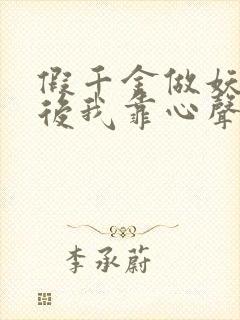 假千金做妖
後我靠心聲
李承蔚